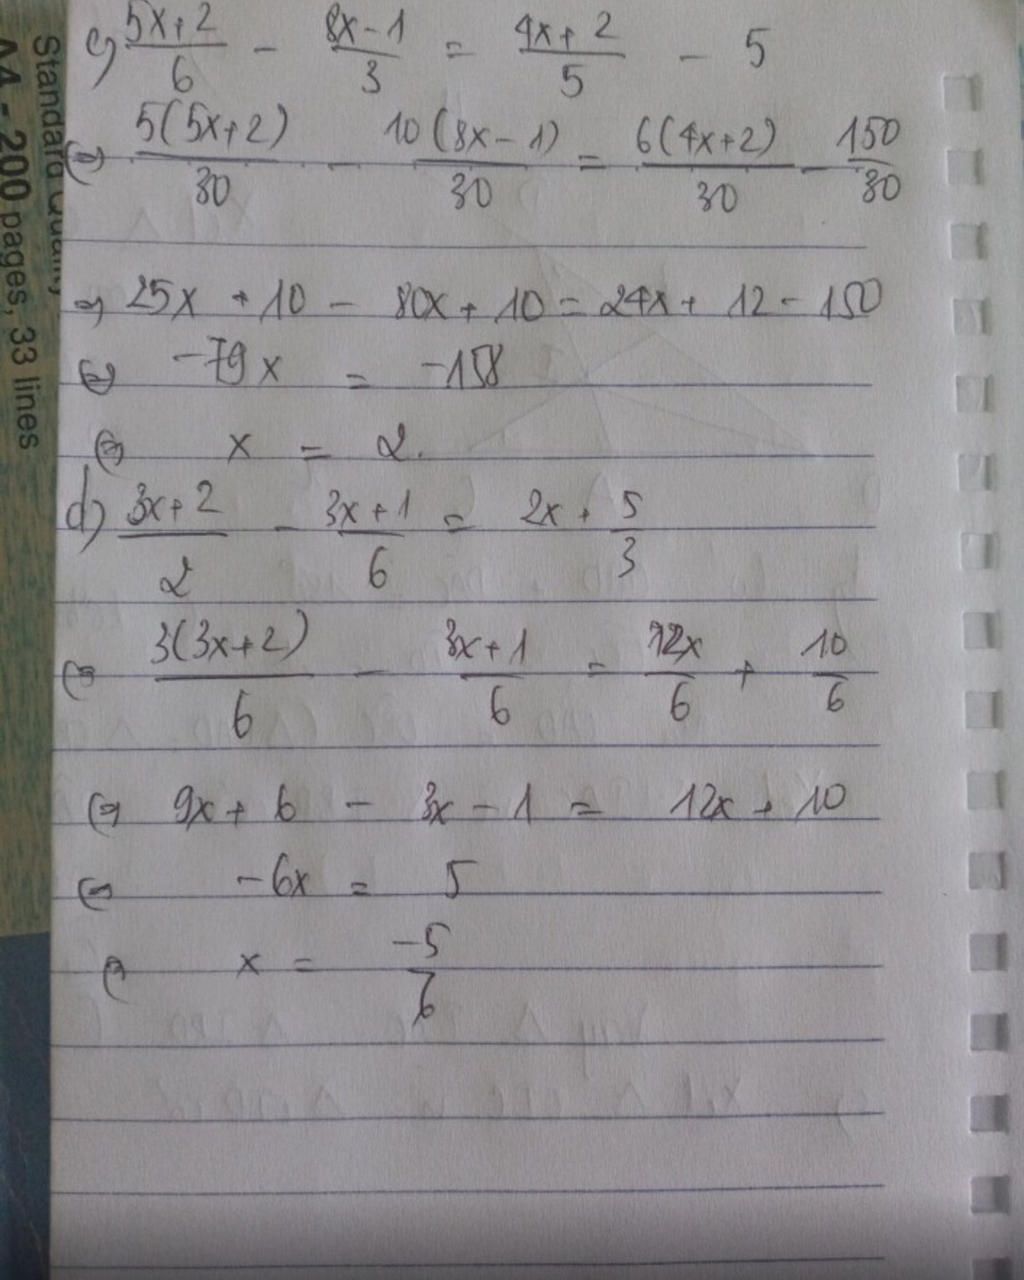 c) (5x+2)/6 - (8x-1)/3 = (4x+2)/5 - 5
⇔ 5(5x+2)/30 - 10(8x-1)/30 = 6(4x+2)/30 - 150/30
⇒ 25x + 10 - 80x + 10 = 24x + 12 - 150
⇔ -79x = -158
⇔ x = 2.
d) (3x+2)/2 - (3x+1)/6 = 2x + 5/3
⇔ 3(3x+2)/6 - (3x+1)/6 = 12x/6 + 10/6
⇔ 9x + 6 - 3x - 1 = 12x + 10
⇔ -6x = 5
⇔ x = -5/6
Standard Quality
A4 - 200 pages, 33 lines